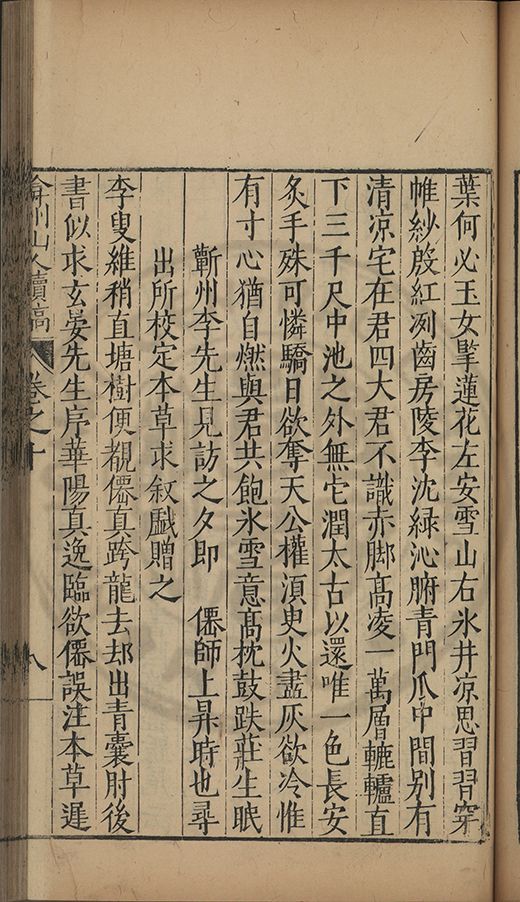 葉何必玉女擘蓮花左安雪山右氷井凉思習習穿
帷紗殷紅冽齒房陵李沈緑沁腑青門瓜中間别有
清凉宅在君四大君不識赤脚髙凌一萬層轆轤直
下三千尺中池之外無它潤太古以還唯一色長安
炙手殊可憐驕日欲奪天公權湏臾火盡灰欲冷惟
有寸心猶自燃與君共飽氷雪意髙枕鼓趺莊生眠
蘄州李先生見訪之夕即　僊師上昇時也尋
出所校定本草求叙戯贈之
李叟維稍直塘樹便覩僊真跨龍去却出青囊肘後
書似求玄晏先生序華陽真逸臨欲僊誤注本草遲
弇州山人續稿
卷之十
八